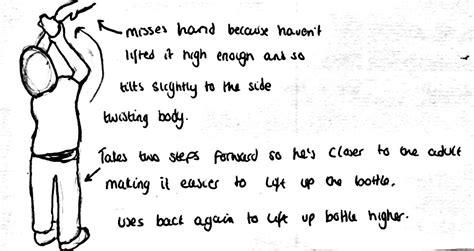 misses hand because haven't
lifted it high enough and so
tilts slightly to the side
twisting body.
Takes two steps forward so he's closer to the adult
making it easier to lift up the bottle.
uses back again to lift up bottle higher.